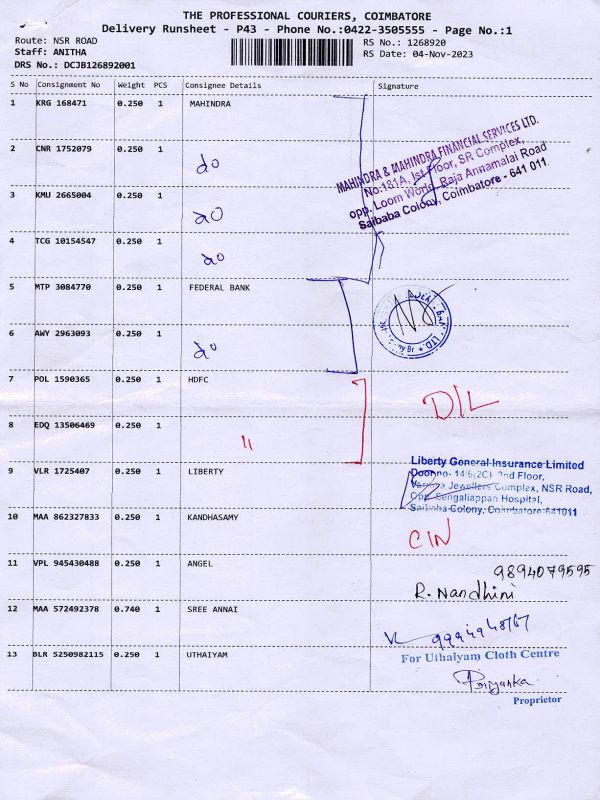 THE PROFESSIONAL COURIERS, COIMBATORE
Delivery Runsheet - P43 - Phone No.:0422-3505555 - Page No.:1
Route: NSR ROAD
RS No.: 1268920
Staff: ANITHA
RS Date: 04-Nov-2023
DRS No.: DCJB126892001
S No Consignment No Weight PCS Consignee Details Signature
1 KRG 168471 0.250 1 MAHINDRA
MAHINDRA & MAHINDRA FINANCIAL SERVICES LTD.
No:181A, Ist Floor, SR Complex,
opp. Loom World, Raja Annamalai Road
Saibaba Colony, Coimbatore - 641 011
2 CNR 1752079 0.250 1 do
3 KMU 2665004 0.250 1 do
4 TCG 10154547 0.250 1 do
5 MTP 3084770 0.250 1 FEDERAL BANK
6 AWY 2963093 0.250 1 do
7 POL 1590365 0.250 1 HDFC
D/L
8 EDQ 13506469 0.250 1 "
9 VLR 1725407 0.250 1 LIBERTY
Liberty General Insurance Limited
Door no- 14/6(2C), 2nd Floor,
Jewellers Complex, NSR Road,
Opp. Sengaliappan Hospital,
Saibaba Colony, Coimbatore-641011
10 MAA 862327833 0.250 1 KANDHASAMY
C/N
11 VPL 945430488 0.250 1 ANGEL
9894079595
R. Nandhini
12 MAA 572492378 0.740 1 SREE ANNAI
13 BLR 5250982115 0.250 1 UTHAIYAM
For Uthaiyam Cloth Centre
Priyanka
Proprietor